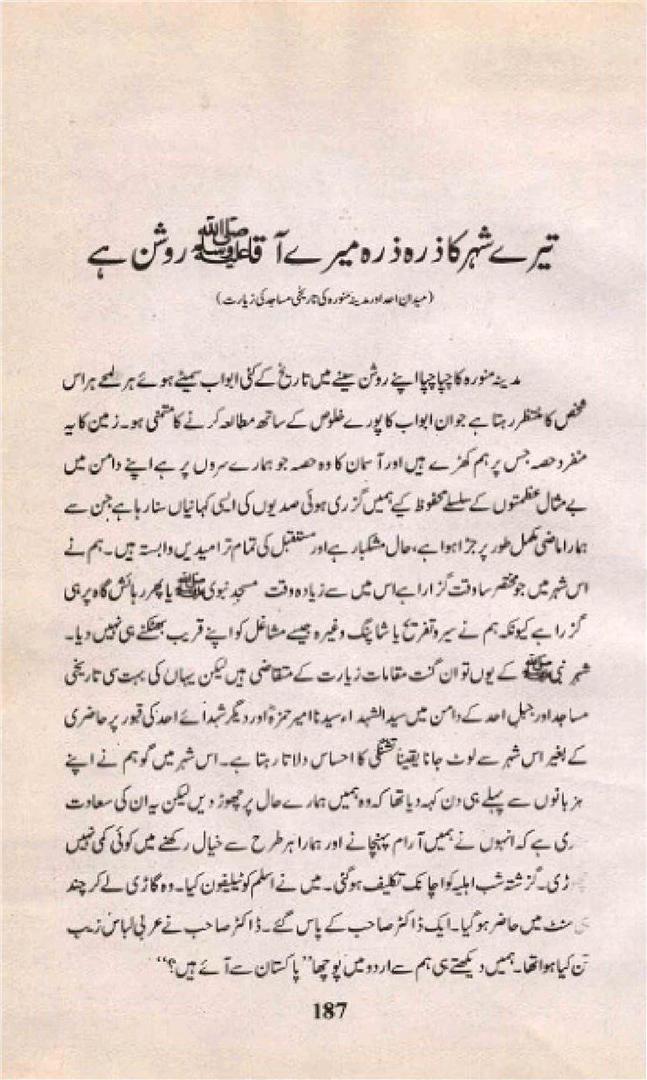 تیرے شہر کا ذرہ ذرہ میرے آقا ﷺ روشن ہے
(میدانِ احد اور مدینہ منورہ کی تاریخی مساجد کی زیارت)
مدینہ منورہ کا چپا چپا اپنے روشن سینے میں تاریخ کے کئی ابواب سمیٹے ہوئے ہر لمحے ہر اس
شخص کا منتظر رہتا ہے جو ان ابواب کا پورے خلوص کے ساتھ مطالعہ کرنے کا متمنی ہو۔ زمین کا یہ
منفرد حصہ جس پر ہم کھڑے ہیں اور آسمان کا وہ حصہ جو ہمارے سروں پر ہے اپنے دامن میں
بے مثال عظمتوں کے سلسلے محفوظ کیے ہمیں گزری ہوئی صدیوں کی ایسی کہانیاں سنا رہا ہے جن سے
ہمارا ماضی مکمل طور پر جڑا ہوا ہے، حال مشکبار ہے اور مستقبل کی تمام تر امیدیں وابستہ ہیں۔ ہم نے
اس شہر میں جو مختصر سا وقت گزارا ہے اس میں سے زیادہ وقت مسجدِ نبوی ﷺ یا پھر رہائش گاہ پر ہی
گزرا ہے کیونکہ ہم نے سیر و تفریح یا شاپنگ وغیرہ جیسے مشاغل کو اپنے قریب بھٹکنے ہی نہیں دیا۔
شہر نبی ﷺ کے یوں تو ان گنت مقامات زیارت کے متقاضی ہیں لیکن یہاں کی بہت سی تاریخی
مساجد اور جبلِ احد کے دامن میں سید الشہداء سیدنا امیر حمزہؓ اور دیگر شہدائے احد کی قبور پر حاضری
کے بغیر اس شہر سے لوٹ جانا یقیناً تشنگی کا احساس دلاتا رہتا ہے۔ اس شہر میں گو ہم نے اپنے
میزبانوں سے پہلے ہی دن کہہ دیا تھا کہ وہ ہمیں ہمارے حال پر چھوڑ دیں لیکن یہ ان کی سعادت
ری ہے کہ انہوں نے ہمیں آرام پہنچانے اور ہمارا ہر طرح سے خیال رکھنے میں کوئی کمی نہیں
چھوڑی۔ گزشتہ شب اہلیہ کو اچانک تکلیف ہو گئی۔ میں نے اسلم کو ٹیلیفون کیا۔ وہ گاڑی لے کر چند
ہی منٹ میں حاضر ہو گیا۔ ایک ڈاکٹر صاحب کے پاس گئے۔ ڈاکٹر صاحب نے عربی لباس زیب
تن کیا ہوا تھا۔ ہمیں دیکھتے ہی ہم سے اردو میں پوچھا "پاکستان سے آئے ہیں؟"
187